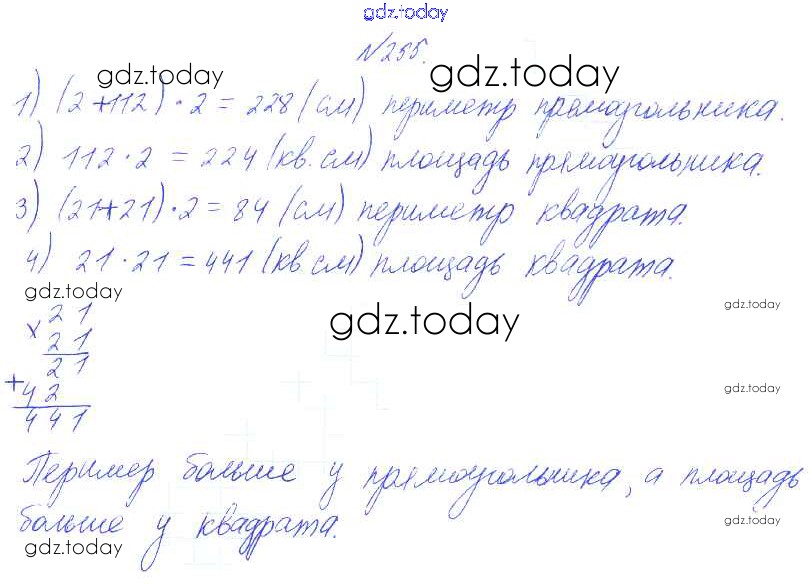 gdz.today
№255.
gdz.today
gdz.today
1) (2+112)·2=228(см) периметр прямоугольника.
2) 112·2=224(кв.см) площадь прямоугольника.
3) (21+21)·2=84(см) периметр квадрата.
4) 21·21=441(кв.см) площадь квадрата.
gdz.today
gdz.today
gdz.today
× 21
21
21
+ 42
441
gdz.today
Пеример больше у прямоугольника, а площадь
больше у квадрата.
gdz.today
gdz.today